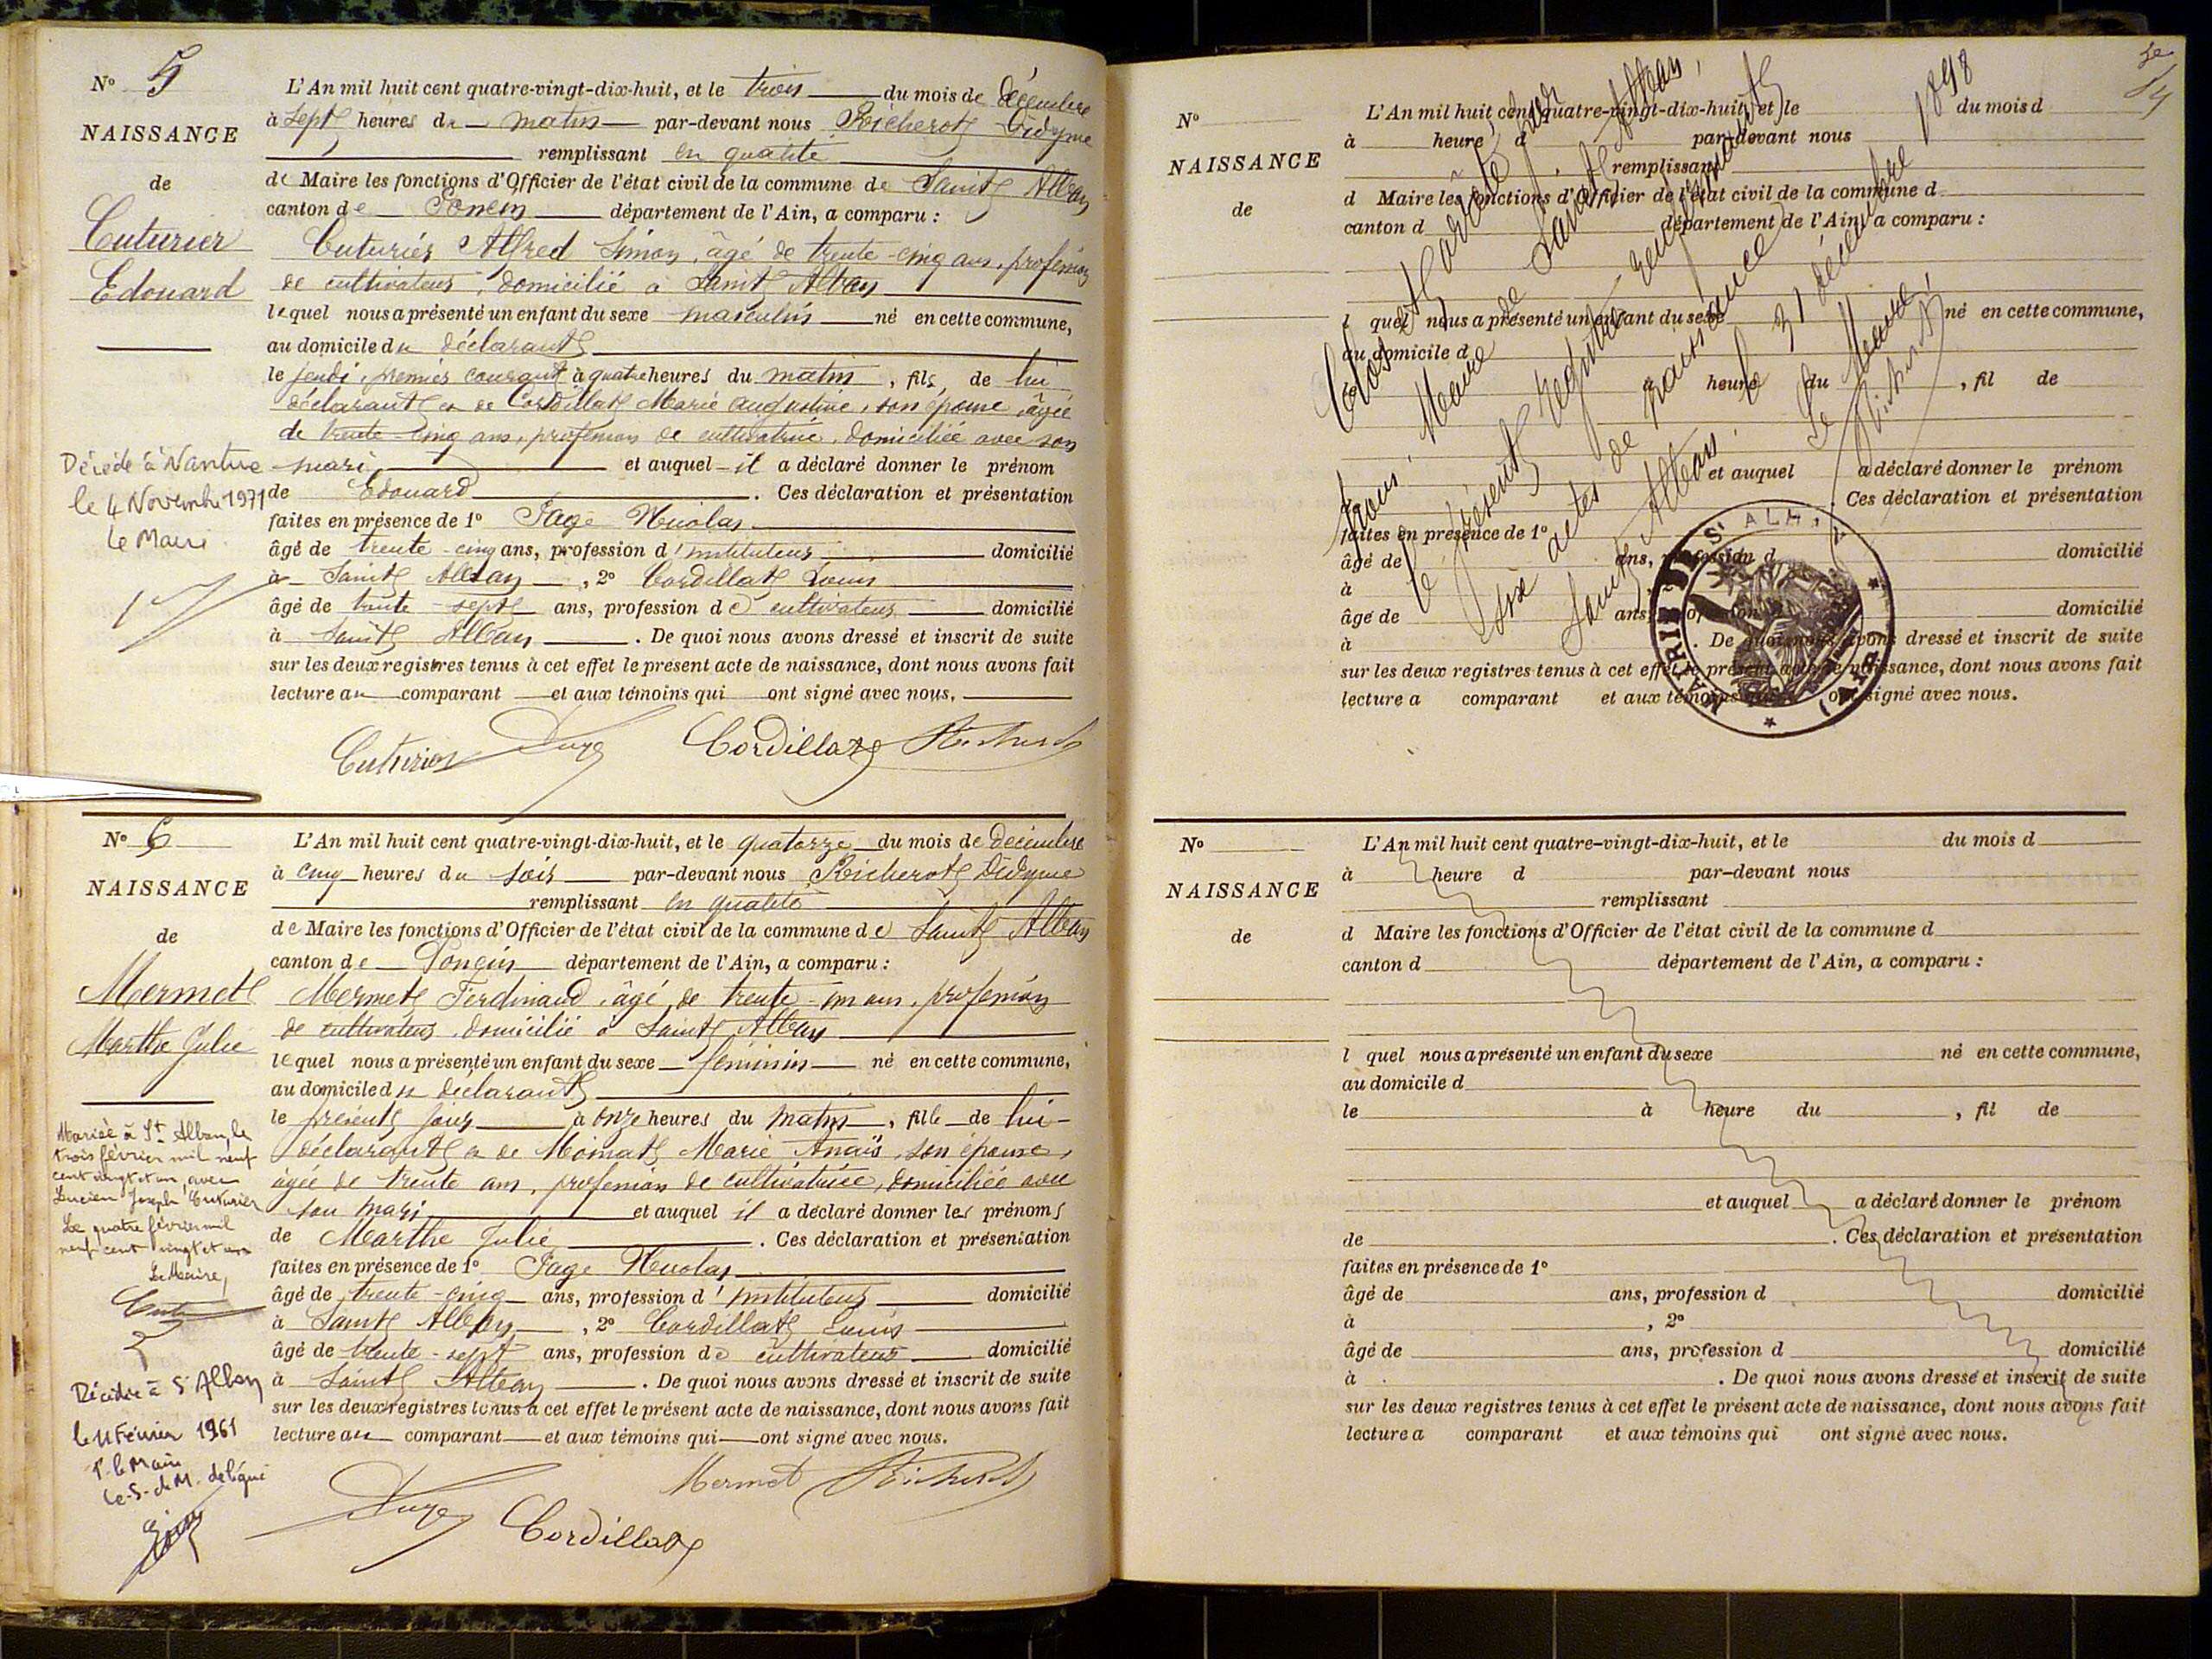 N° 5
NAISSANCE
de
Cuturier
Edouard
L'An mil huit cent quatre-vingt-dix-huit, et le trois du mois de décembre
à sept heures du matin par-devant nous Richerot Didyme
remplissant en qualité
de Maire les fonctions d'Officier de l'état civil de la commune de Saint Alban
canton de Poncin département de l'Ain, a comparu :
Cuturier Alfred Simon, âgé de trente-cinq ans, profession
de cultivateur, domicilié à Saint Alban
lequel nous a présenté un enfant du sexe masculin né en cette commune,
au domicile du déclarant
le jeudi, premier courant à quatre heures du matin, fils de lui
déclarant et de Cordillat Marie Augustine, son épouse âgée
de trente-cinq ans, profession de cultivatrice, domiciliée avec son
mari et auquel il a déclaré donner le prénom
de Edouard. Ces déclaration et présentation
faites en présence de 1° Page Nicolas
âgé de trente-cinq ans, profession d'instituteur domicilié
à Saint Alban, 2° Cordillat Louis
âgé de trente-sept ans, profession de cultivateur domicilié
à Saint Alban. De quoi nous avons dressé et inscrit de suite
sur les deux registres tenus à cet effet le présent acte de naissance, dont nous avons fait
lecture au comparant et aux témoins qui ont signé avec nous.
Décédé à Nantua
le 4 Novembre 1971
Le Maire
Cuturier Page Cordillat Richerot
N° 6
NAISSANCE
de
Mermet
Marthe Julie
L'An mil huit cent quatre-vingt-dix-huit, et le quatorze du mois de décembre
à cinq heures du soir par-devant nous Richerot Didyme
remplissant en qualité
de Maire les fonctions d'Officier de l'état civil de la commune de Saint Alban
canton de Poncin département de l'Ain, a comparu :
Mermet Ferdinand, âgé de trente-un ans, profession
de cultivateur, domicilié à Saint Alban
lequel nous a présenté un enfant du sexe féminin né en cette commune,
au domicile du déclarant
le présent jour à onze heures du matin, fille de lui-
déclarant et de Moinat Marie Anaïs, son épouse,
âgée de trente ans, profession de cultivatrice, domiciliée avec
son mari et auquel il a déclaré donner les prénoms
de Marthe Julie. Ces déclaration et présentation
faites en présence de 1° Page Nicolas
âgé de trente-cinq ans, profession d'instituteur domicilié
à Saint Alban, 2° Cordillat Louis
âgé de trente-sept ans, profession de cultivateur domicilié
à Saint Alban. De quoi nous avons dressé et inscrit de suite
sur les deux registres tenus à cet effet le présent acte de naissance, dont nous avons fait
lecture au comparant et aux témoins qui ont signé avec nous.
Mariée à St Alban, le
trois février mil neuf
cent vingt et un, avec
Lucien Joseph Cuturier
Le quatre février mil
neuf cent vingt et un
Le Maire,
Décédée à St Alban
le 11 Février 1961
P. le Maire
Le S. de M. délégué
Mermet Richerot
Page Cordillat
N°
NAISSANCE
de
L'An mil huit cent quatre-vingt-dix-huit, et le du mois d
à heure d par-devant nous
remplissant
d Maire les fonctions d'Officier de l'état civil de la commune d
canton d département de l'Ain, a comparu :
l quel nous a présenté un enfant du sexe né en cette commune,
au domicile d
à heure du , fil de
et auquel a déclaré donner le prénom
. Ces déclaration et présentation
faites en présence de 1°
âgé de ans, profession d domicilié
à
âgé de ans, profession domicilié
à . De quoi nous avons dressé et inscrit de suite
sur les deux registres tenus à cet effet le présent acte de naissance, dont nous avons fait
lecture a comparant et aux témoins qui ont signé avec nous.
Clos et arrêté par
nous, Maire de Saint Alban,
le présent registre renfermant
six actes de naissance
Saint Alban, le 31 décembre 1898
Le Maire,
Richerot
MAIRIE DE St ALBAN (AIN)
N°
NAISSANCE
de
L'An mil huit cent quatre-vingt-dix-huit, et le du mois d
à heure d par-devant nous
remplissant
d Maire les fonctions d'Officier de l'état civil de la commune d
canton d département de l'Ain, a comparu :
l quel nous a présenté un enfant du sexe né en cette commune,
au domicile d
le à heure du , fil de
et auquel a déclaré donner le prénom
de . Ces déclaration et présentation
faites en présence de 1°
âgé de ans, profession d domicilié
à , 2°
âgé de ans, profession d domicilié
à . De quoi nous avons dressé et inscrit de suite
sur les deux registres tenus à cet effet le présent acte de naissance, dont nous avons fait
lecture a comparant et aux témoins qui ont signé avec nous.